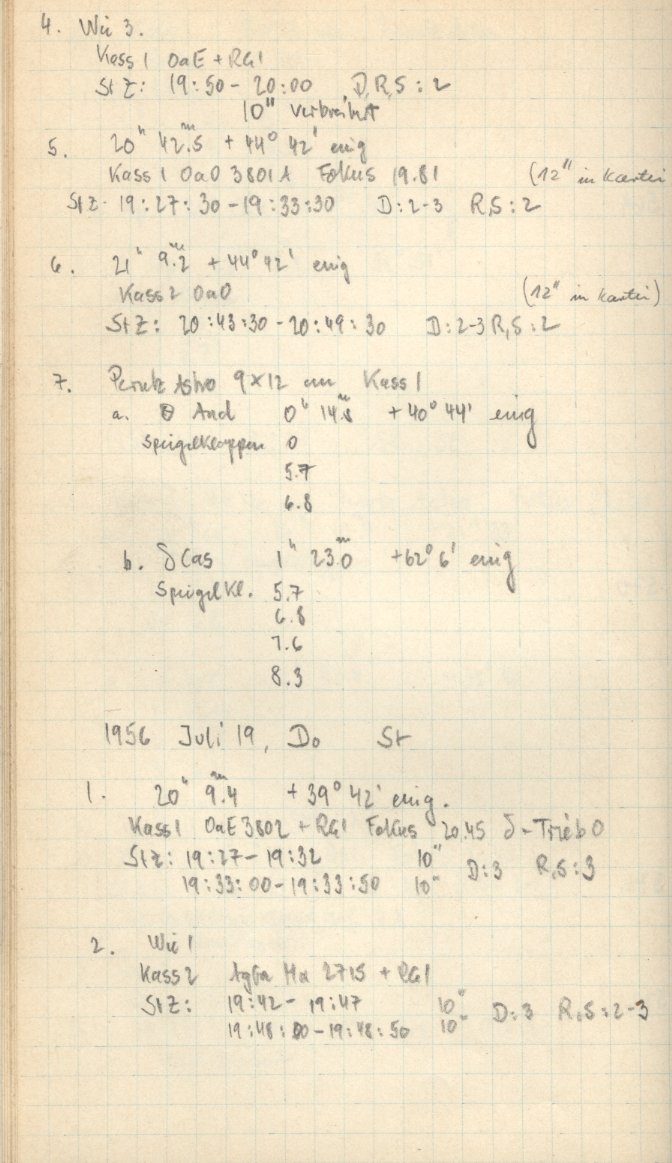 4. Wie 3.
Kass 1 OaE + RG1
StZ: 19:50 - 20:00 D,R,S: 2
10" verbreitert
5. 20h 42.m5 + 44° 42'
Kass 1 OaO 3801 A Fokus 19.81 (12" in Kartei
StZ. 19:27:30 - 19:33:30 D: 2-3 R,S: 2
6. 21h 9.m2 + 44° 42'
Kass 2 OaO (12" in Kartei)
StZ: 20:43:30 - 20:49:30 D: 2-3 R,S: 2
7. Perutz Astro 9x12 cm Kass 1
a. θ And 0h 14.m + 40° 44'
Spiegelklappen 0
5.7
6.8
b. δ Cas 1h 23.m0 + 62° 6'
Spiegelkl. 5.7
6.8
7.6
8.3
1956 Juli 19, Do St
1. 20h 9.m4 + 39° 42'
Kass 1 OaE 3802 + RG1 Fokus 20.45 δ-Trieb 0
StZ: 19:27 - 19:32 10" D: 3 R,S: 3
19:33:00 - 19:33:50 10"
2. Wie 1
Kass 2 Agfa Hα 2715 + RG1
StZ: 19:42 - 19:47 10" D: 3 R,S: 2-3
19:48:00 - 19:48:50 10"